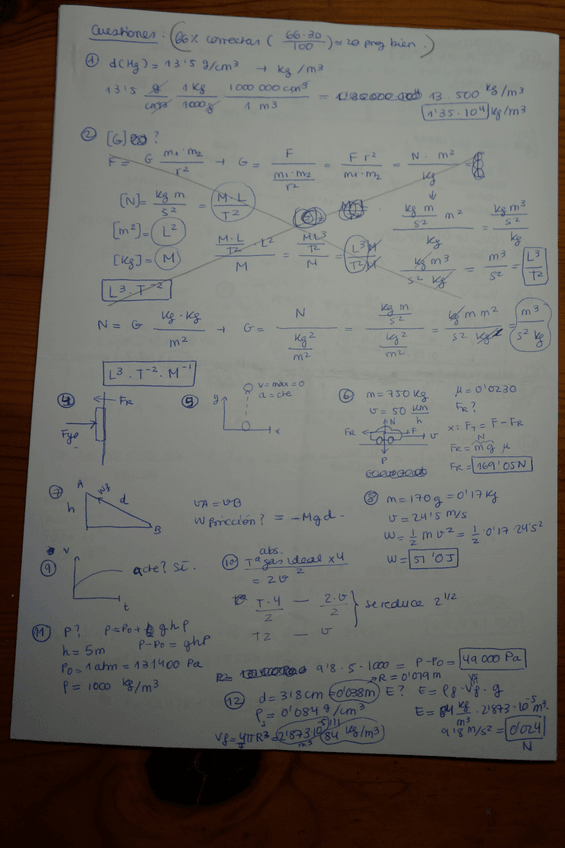 Cuestiones: (66% correctas (66·30/100) ≈ 20 preg bien.)
① d(Hg) = 13'5 g/cm³ → kg/m³
13'5 g/cm³ 1Kg/1000g 1000 000 cm³/1 m³ = 13.500 kg/m³
1'35·10⁴ kg/m³
② [G] ?
F = G m₁·m₂/r² → G = F/(m₁·m₂/r²) = F r²/m₁·m₂ = N·m²/kg
[N] = kg m/s² = M·L/T²
[m²] = L²
[Kg] = M
(M·L/T² · L²)/M = (ML³/T²)/M = L³M/T²M
(kg m/s² m²)/Kg = (kg m³/s²)/kg
kg m³/s² kg = m³/s² = L³/T²
L³·T⁻²
N = G Kg·Kg/m² → G = N/(kg²/m²) = (kg m/s²)/(kg²/m²) = kg m m²/s² kg² = m³/s² kg
L³·T⁻²·M⁻¹
④ FR
⑤ y v=max=0
a=cte
x
⑥ m = 750 Kg μ = 0'0230
v = 50 km/h FR?
N FR F v P
x: FT = F - FR
FR = mg μ
N
FR = 169'05N
⑦ A h d B
vA = vB
Wfricción? = -Mgd.
⑧ m = 170 g = 0'17 Kg
v = 24'5 m/s
W = 1/2 m v² = 1/2·0'17·24'5²
W = 51'0 J
⑨ v t
acte? Sí.
⑩ abs.
Tª gas ideal x4
= 2v
T·4/2 — 2·v/2
T2 — v
se reduce 2^1/2
⑪ P? P = P₀ + ghρ
h = 5m P-P₀ = ghρ
P₀ = 1 atm = 131400 Pa
ρ = 1000 kg/m³
9'8·5·1000 = P-P₀ = 49000 Pa
⑫ d = 3'8cm = 0'038m R = 0'019m E? E = ρf·Vf·g
ρs = 0'084 g/cm³
84 kg/m³
Vf = 4/3πR³ = 2'873·10⁻⁵ m³
E = 84 kg/m³ · 2'873·10⁻⁵ m³·
9'8 m/s² = 0'024 N